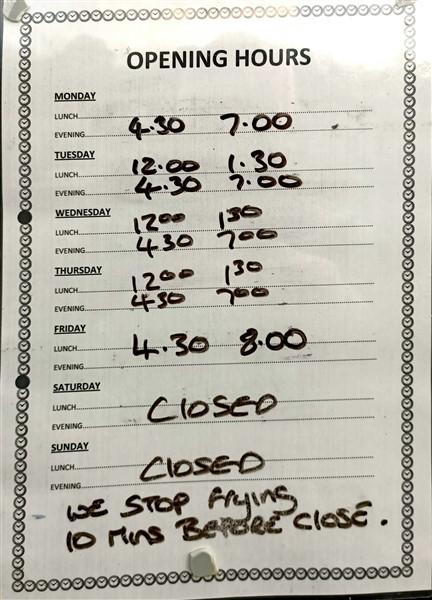 OPENING HOURS
MONDAY
LUNCH
EVENING 4.30 7.00
TUESDAY
LUNCH 12.00 1.30
EVENING 4.30 7.00
WEDNESDAY
LUNCH 12 00 1 30
EVENING 4 30 7 00
THURSDAY
LUNCH 12 00 1 30
EVENING 4 30 7 00
FRIDAY
LUNCH 4.30 8.00
EVENING
SATURDAY
LUNCH CLOSED
EVENING
SUNDAY
LUNCH CLOSED
EVENING
WE STOP FRYING
10 MINS BEFORE CLOSE.